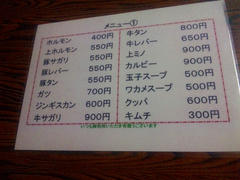 メニュー①
ホルモン 400円
上ホルモン 550円
豚サガリ 550円
豚レバー 550円
豚タン 550円
ガツ 700円
ジンギスカン 600円
牛サガリ 900円
牛タン 800円
牛レバー 650円
上ミノ 900円
カルビー 900円
玉子スープ 500円
ワカメスープ 500円
クッパ 600円
キムチ 300円
いつも御利用いただき有難うございます